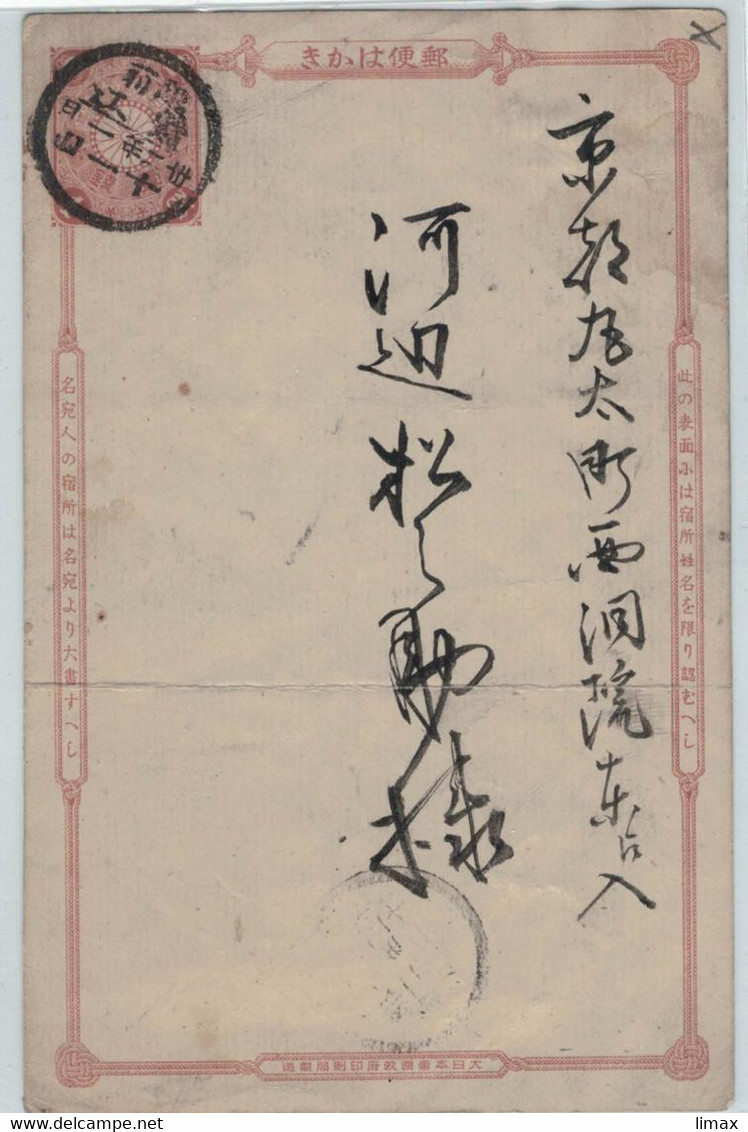 郵便はかき
此の表面には宿所姓名を限り認むへし
京都丸太町西洞院東へ入
河辺松之助様
名宛人の宿所は名宛より大書すへし
大日本帝國政府印刷局製造
limax